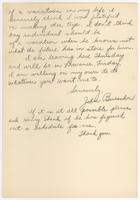 of a vacation in my life &
sincerely think I was justified
in making this trip. I don't think
any individual should be
of a vacation when he knows not
what the future has in store for him.
I am leaving here Thursday
and will be in Denver, Friday.
I am willing on my own to do
whatever you want me to.
Sincerely,
John
If it is at all possible please
ask Harry Stark if he has figured
out a schedule for me.
Thank you